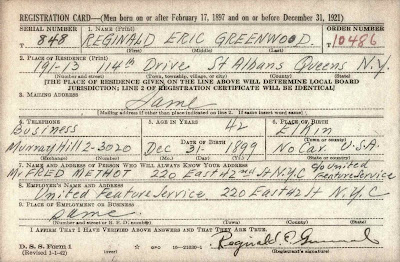 REGISTRATION CARD—(Men born on or after February 17, 1897 and on or before December 31, 1921)
SERIAL NUMBER 1. NAME (Print) ORDER NUMBER
T 848 REGINALD ERIC GREENWOOD T10486
(First) (Middle) (Last)
2. PLACE OF RESIDENCE (Print)
191-13 114th Drive St Albans Queens N.Y.
(Number and street) (Town, township, village, or city) (County) (State)
[THE PLACE OF RESIDENCE GIVEN ON THE LINE ABOVE WILL DETERMINE LOCAL BOARD
JURISDICTION; LINE 2 OF REGISTRATION CERTIFICATE WILL BE IDENTICAL]
3. MAILING ADDRESS
Same
(Mailing address if other than place indicated on line 2. If same insert word same)
4. TELEPHONE 5. AGE IN YEARS 6. PLACE OF BIRTH
Business 42 Elkin
DATE OF BIRTH (Town or county)
Murray Hill 2-3020 Dec 31- 1899 No Car U.S.A.
(Exchange) (Number) (Mo.) (Day) (Yr.) (State or country)
7. NAME AND ADDRESS OF PERSON WHO WILL ALWAYS KNOW YOUR ADDRESS c/o United
Mr FRED METHOT 220 East 42nd St N.Y.C Feature Service
8. EMPLOYER'S NAME AND ADDRESS
United Feature Service 220 East 42 St N.Y.C
9. PLACE OF EMPLOYMENT OR BUSINESS
Same
(Number and street or R. F. D. number) (Town) (County) (State)
I AFFIRM THAT I HAVE VERIFIED ABOVE ANSWERS AND THAT THEY ARE TRUE.
D. S. S. Form 1
(Revised 1-1-42) (over) GPO 16—21630-1 Reginald E.
(Registrant's signature)